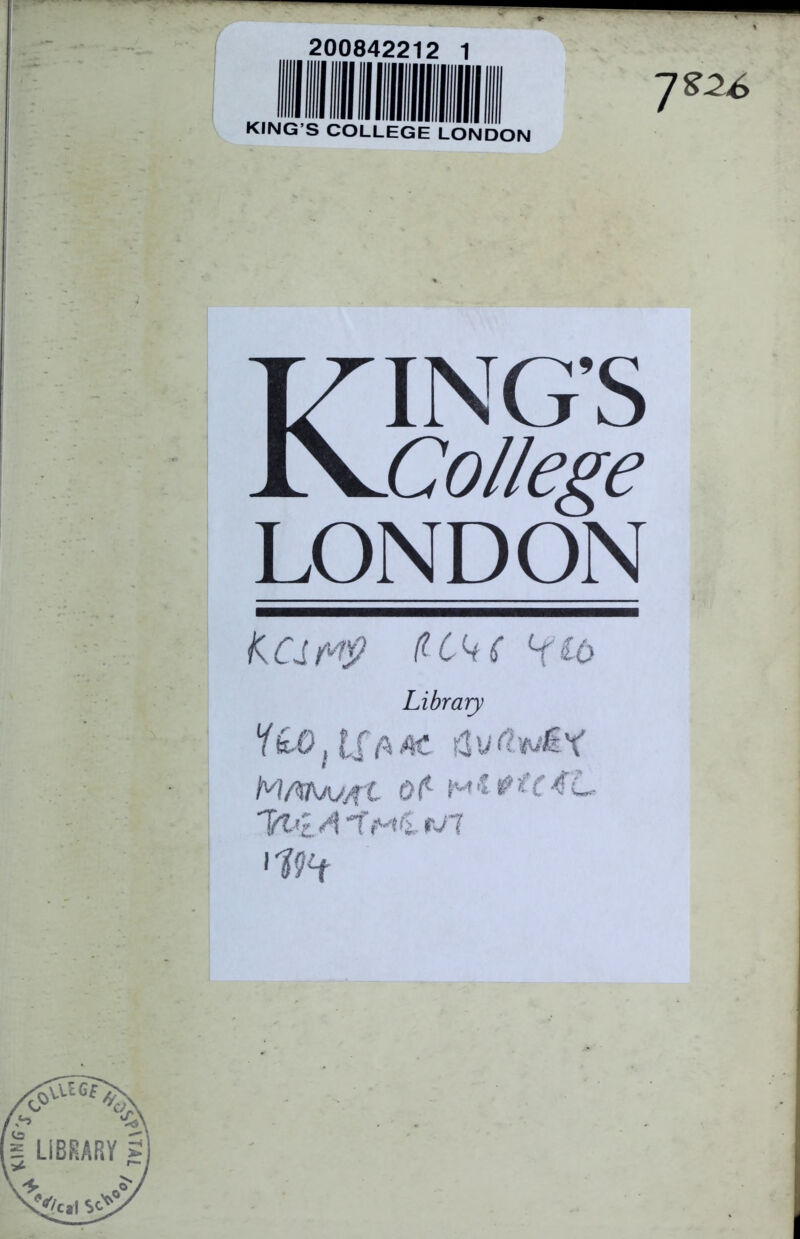 200842212 1
KING'S COLLEGE LONDON
7826
KING'S
College
LONDON
KCSMD RC46 YEO
Library
YEO, ISAAC BURNEY
MANUAL OF MEDICAL
TREATMENT
1894
KING'S COLLEGE HOSPITAL
LIBRARY
Medical School